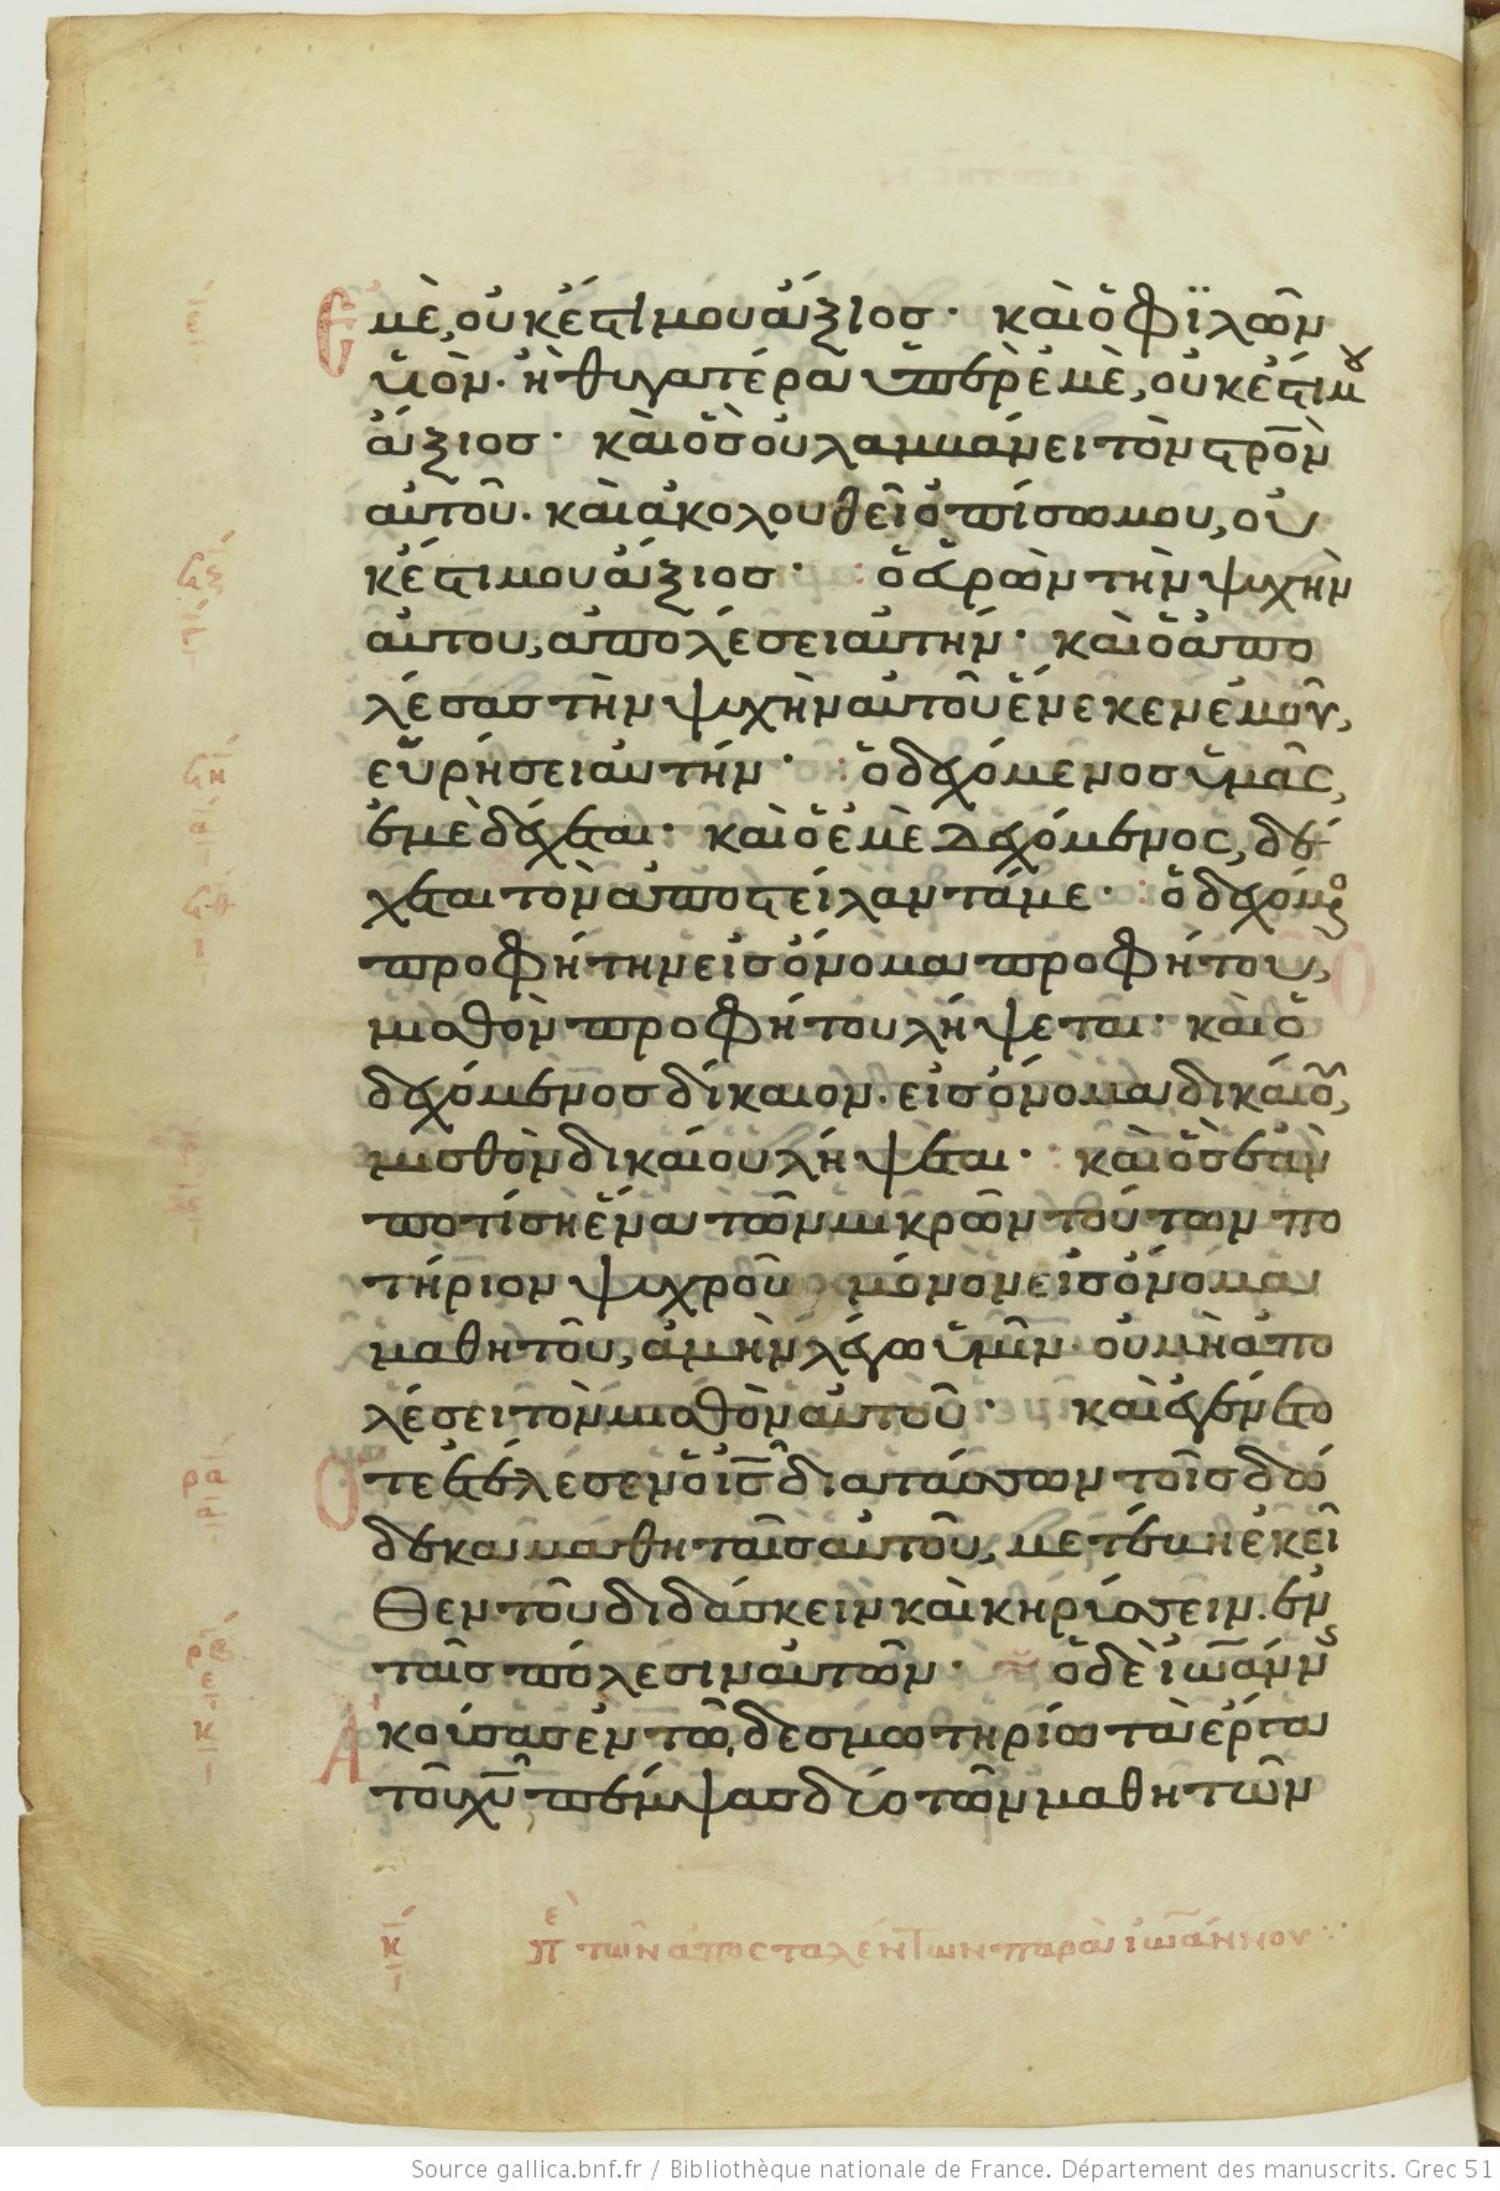 Ἐμὲ, οὐκ ἔστι μου ἄξιος· καὶ ὁ φϊλῶν
ὑϊὸν· ἢ θυγατέρα ὑπὲρ ἐμὲ, οὐκ ἔστι μου
ἄξιος· καὶ ὃς οὐ λαμβάνει τὸν σρ̅ὸν
αὐτοῦ. καὶ ἀκολουθεῖ ὀπίσω μου, οὐ
κ ἔστι μου ἄξιος· : ὁ εὑρὼν τὴν ψυχὴν
αὐτου, ἀπολέσει αὐτήν· καὶ ὁ ἀπο
λέσας τὴν ψυχὴν αὐτοῦ ἕνεκεν ἐμοῦ,
εὑρήσει αὐτήν· : ὁ δεχόμενος ὑμᾶς,
ἐμὲ δέχεται· καὶ ὁ ἐμὲ δεχόμενος, δέ
χεται τὸν ἀποστείλαντά με· : ὁ δεχόμενος
προφήτην εἰς ὄνομα προφήτου,
μισθὸν προφήτου λήψεται· καὶ ὁ
δεχόμενος δίκαιον. εἰς ὄνομα δικαίου,
μισθὸν δικαίου λήψεται· : καὶ ὃς ἐὰν
ποτίση ἕνα τῶν μικρῶν τούτων πο
τήριον ψυχροῦ μόνον εἰς ὄνομα
μαθητοῦ, ἀμὴν λέγω ὑμῖν· οὐ μὴ ἀπο
λέσει τὸν μισθὸν αὐτοῦ· καὶ ἐγένετο
Ὅτε ἐτέλεσεν ὁ ις̅ διατάσσων τοῖς δώ
δεκα μαθηταῖς αὐτοῦ, μετέβη ἐκεῖ
θεν τοῦ διδάσκειν καὶ κηρύσσειν. ἐν
ταῖς πόλεσιν αὐτῶν· ὁ δὲ ἰωάνν
Ἀκούσας ἐν τῷ δεσμωτηρίω τὰ ἔργα
τοῦ χυ̅ πέμψας δύο τῶν μαθητῶν
κ̅ πε τῶν ἀποσταλέντων παρὰ ἰωάννου